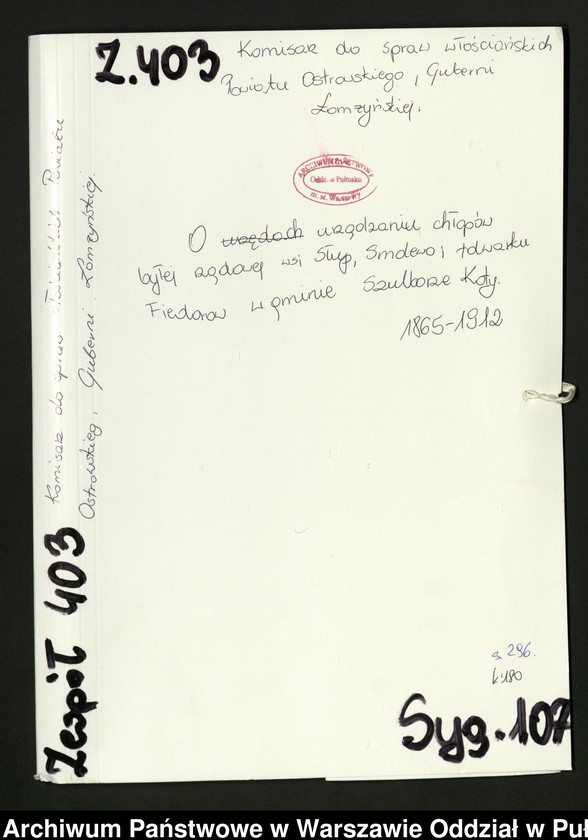 Z.403
Komisarz do spraw włościańskich
Powiatu Ostrowskiego, Guberni
Łomżyńskiej.
ARCHIWUM PAŃSTWOWE
Oddz. w Pułtusku
m. st. Warszawy
O urzędach urządzaniu chłopów
byłej rządowej wsi Słup, Smolewo i folwarku
Fiedorow w gminie Szulborze Koty.
1865-1912
Komisarz do spraw włościańskich Powiatu
Ostrowskiego, Guberni Łomżyńskiej.
Zespół 403
s. 296.
k. 180
Syg. 107
Archiwum Państwowe w Warszawie Oddział w Puł